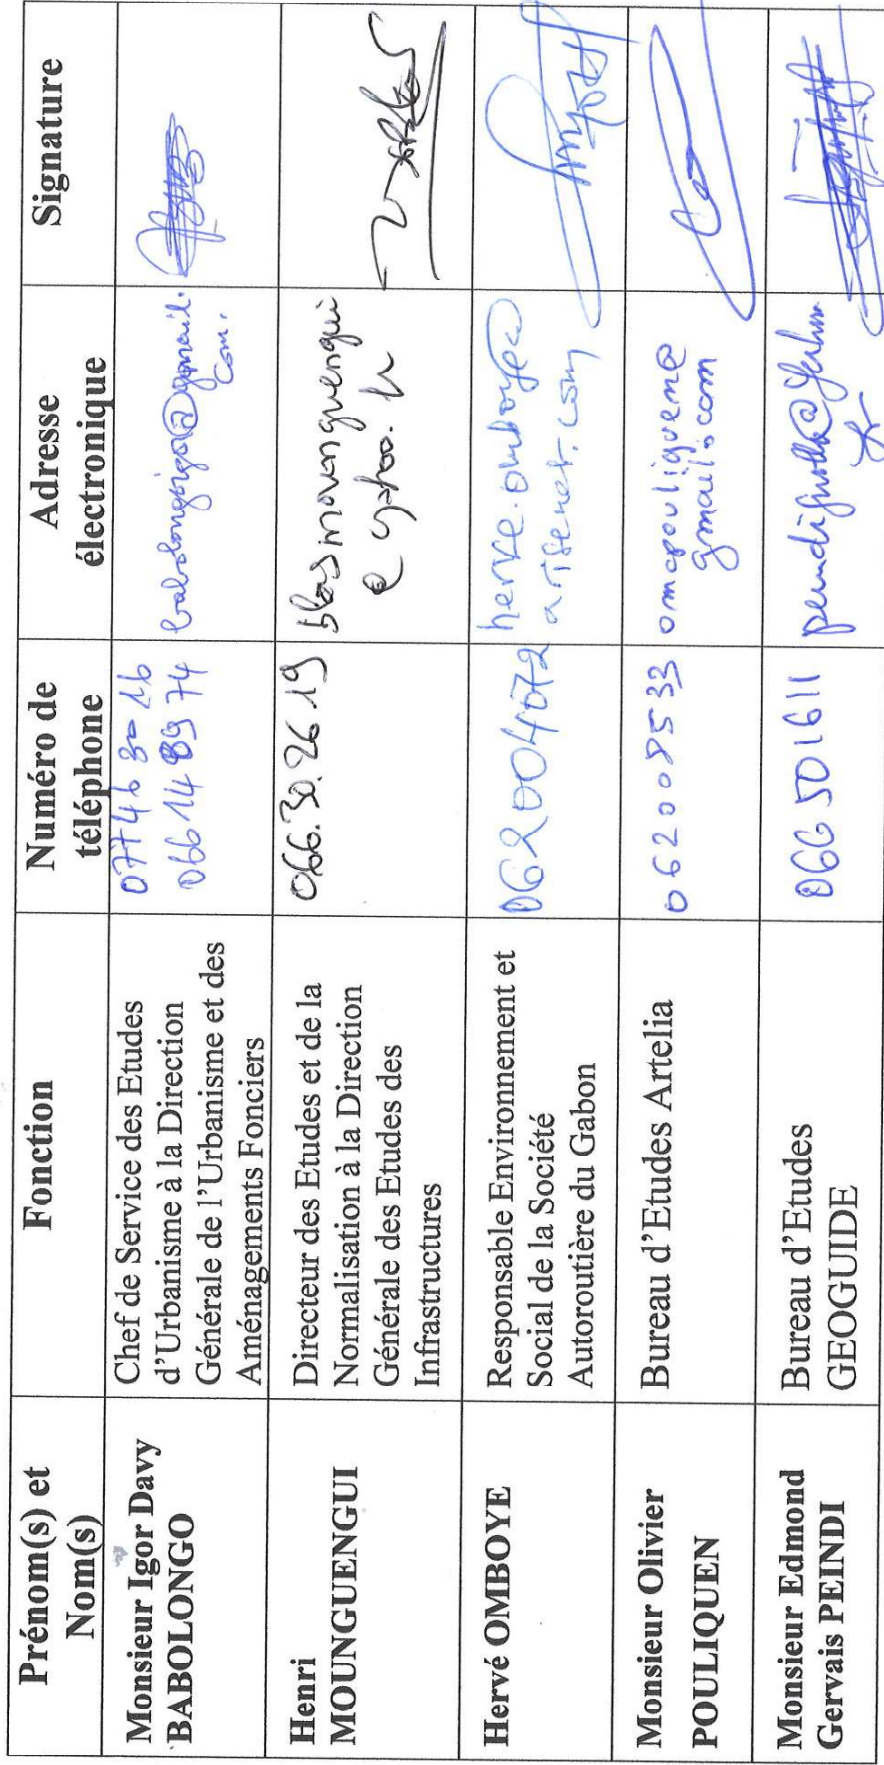 Prénom(s) et
Nom(s)
Fonction
Numéro de
téléphone
Adresse
électronique
Signature
Monsieur Igor Davy
BABOLONGO
Chef de Service des Etudes
d'Urbanisme à la Direction
Générale de l'Urbanisme et des
Aménagements Fonciers
077463016
066148974
babolongoigor@gmail.
com.
Henri
MOUNGUENGUI
Directeur des Etudes et de la
Normalisation à la Direction
Générale des Etudes des
Infrastructures
066.30.26.19
@yahoo.fr
Hervé OMBOYE
Responsable Environnement et
Social de la Société
Autoroutière du Gabon
062004072
herve.omboye@
arisenet.com
Monsieur Olivier
POULIQUEN
Bureau d'Etudes Artelia
062008533
omcpouliquen@
gmail.com
Monsieur Edmond
Gervais PEINDI
Bureau d'Etudes
GEOGUIDE
066501611